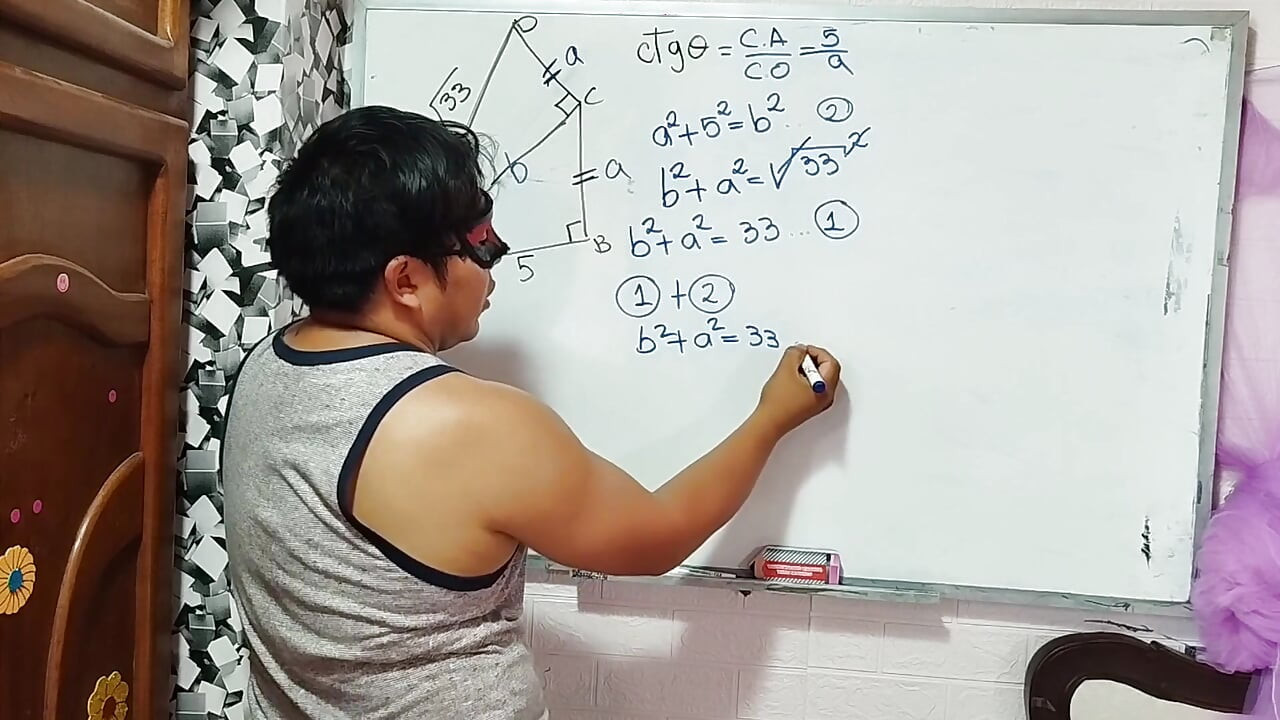 D
a
√33
C
b
a
B
5
ctgθ = C.A/CO = 5/a
a²+5²=b² .. ②
b²+a²=√33²
b²+a²= 33 ... ①
①+②
b²+a²=33